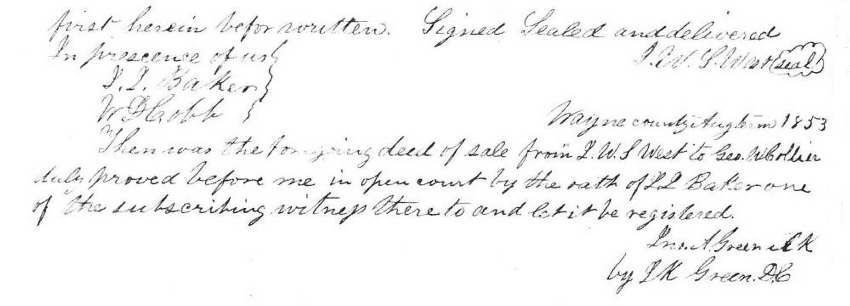 first herein befor written. Signed Sealed and delivered
In prescence of us
J. W. S. West seal
J. J. Baker
W D Cobb
Wayne county Aug term 1853
Then was the forgoing deed of sale from J. W. S West to Geo. W Collier
duly proved before me in open court by the oath of J J Baker one
of the subscribing witness there to and let it be registered.
Jno. A Green CK
by J K Green. D. C